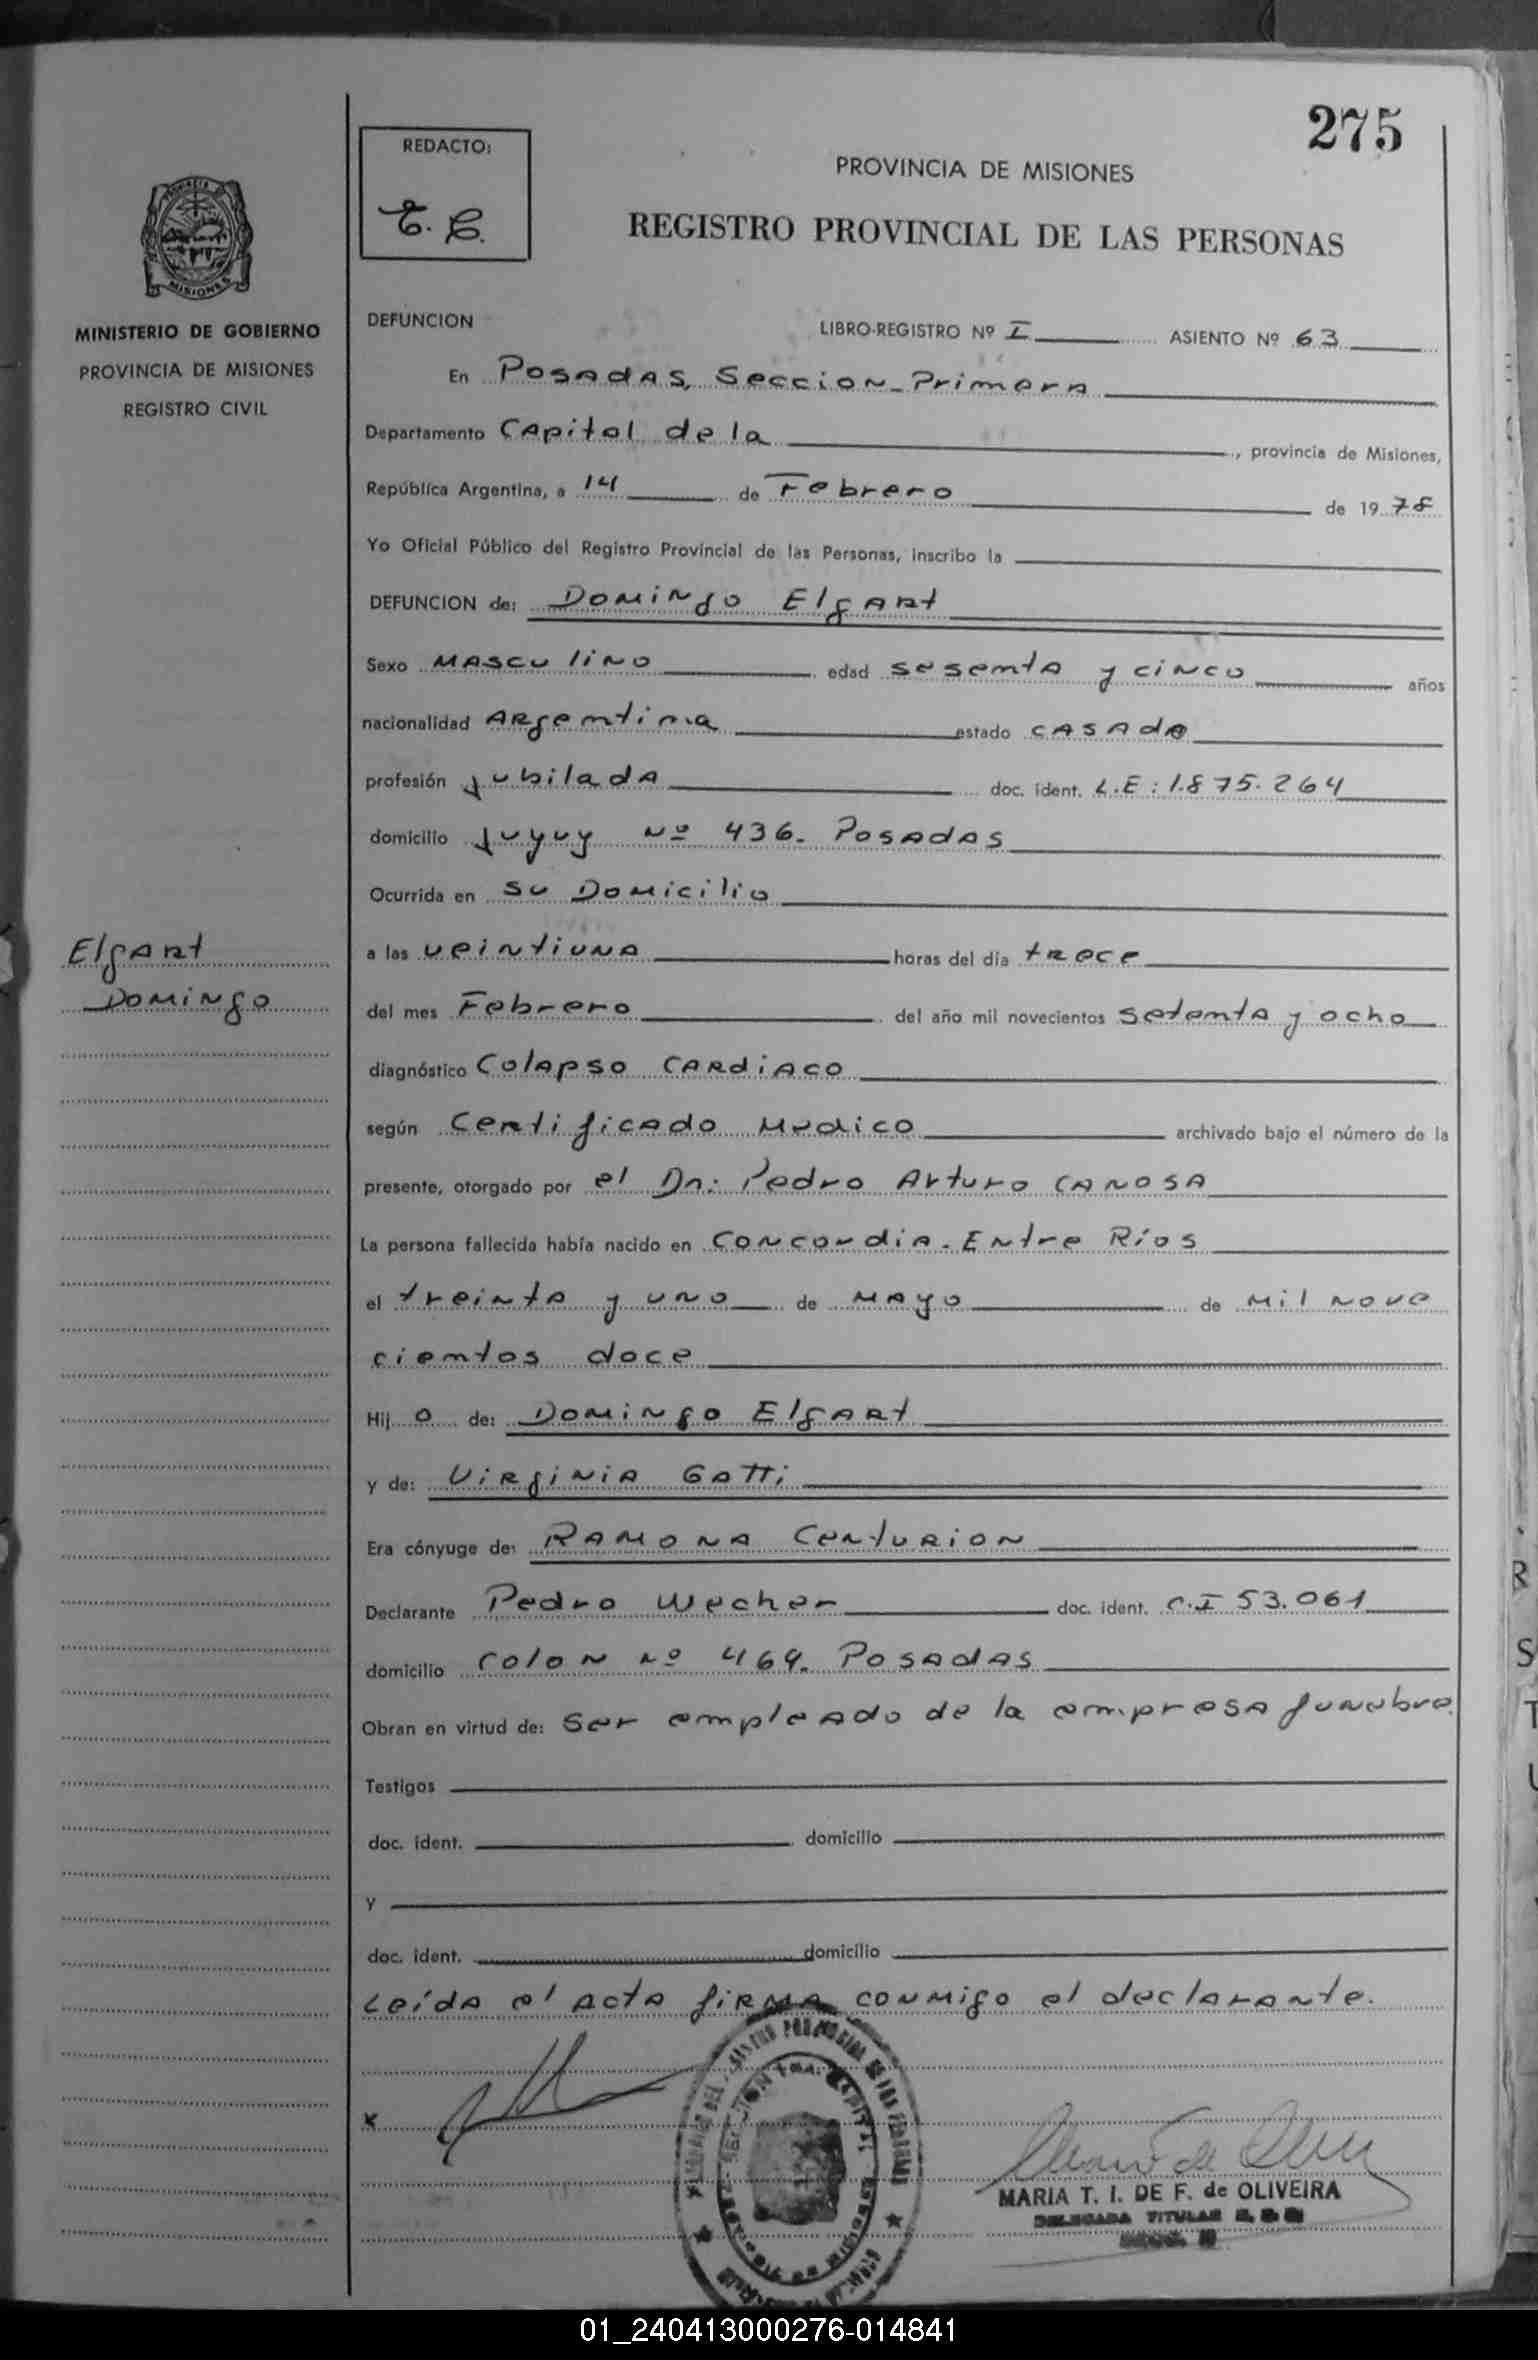 275
REDACTO:
E. C.
PROVINCIA DE MISIONES
REGISTRO PROVINCIAL DE LAS PERSONAS
PROVINCIA DE
MISIONES
MINISTERIO DE GOBIERNO
PROVINCIA DE MISIONES
REGISTRO CIVIL
DEFUNCION LIBRO-REGISTRO Nº I ASIENTO Nº 63
En Posadas, Seccion-Primera
Departamento Capital de la , provincia de Misiones,
República Argentina, a 14 de Febrero de 1978
Yo Oficial Público del Registro Provincial de las Personas, inscribo la
DEFUNCION de: Domingo Elgart
Sexo Masculino edad sesenta y cinco años
nacionalidad Argentina estado casado
profesión jubilada doc. ident. L.E: 1.875.264
domicilio Jujuy Nº 436. Posadas
Ocurrida en su Domicilio
Elgart
Domingo
a las veintiuna horas del día trece
del mes Febrero del año mil novecientos setenta y ocho
diagnóstico Colapso Cardiaco
según Certificado Medico archivado bajo el número de la
presente, otorgado por el Dr: Pedro Arturo CANOSA
La persona fallecida había nacido en Concordia. Entre Ríos
el treinta y uno de Mayo de mil nove
cientos doce
Hij o de: Domingo Elgart
y de: Virginia Gatti
Era cónyuge de: Ramona Centurion
Declarante Pedro Wecher doc. ident. C.I 53.061
domicilio Colon Nº 469. Posadas
Obran en virtud de: Ser empleado de la empresa funebre.
Testigos
doc. ident. domicilio
y
doc. ident. domicilio
Leída el acta firma conmigo el declarante.
x
MARIA T. I. DE F. de OLIVEIRA
DELEGADA TITULAR
01_240413000276-014841